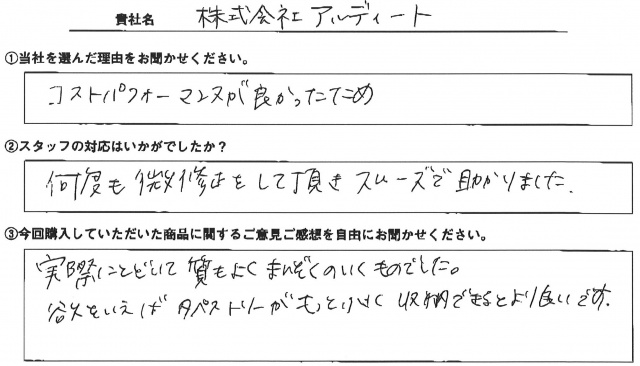 貴社名 株式会社アルディート
①当社を選んだ理由をお聞かせください。
コストパフォーマンスが良かったため
②スタッフの対応はいかがでしたか？
何度も微修正をして頂きスムーズで助かりました.
③今回購入していただいた商品に関するご意見ご感想を自由にお聞かせください。
実際にとどいて質もよくまんぞくのいくものでした。
欲をいえばタペストリーがもっと小さく収納できるとより良いです.